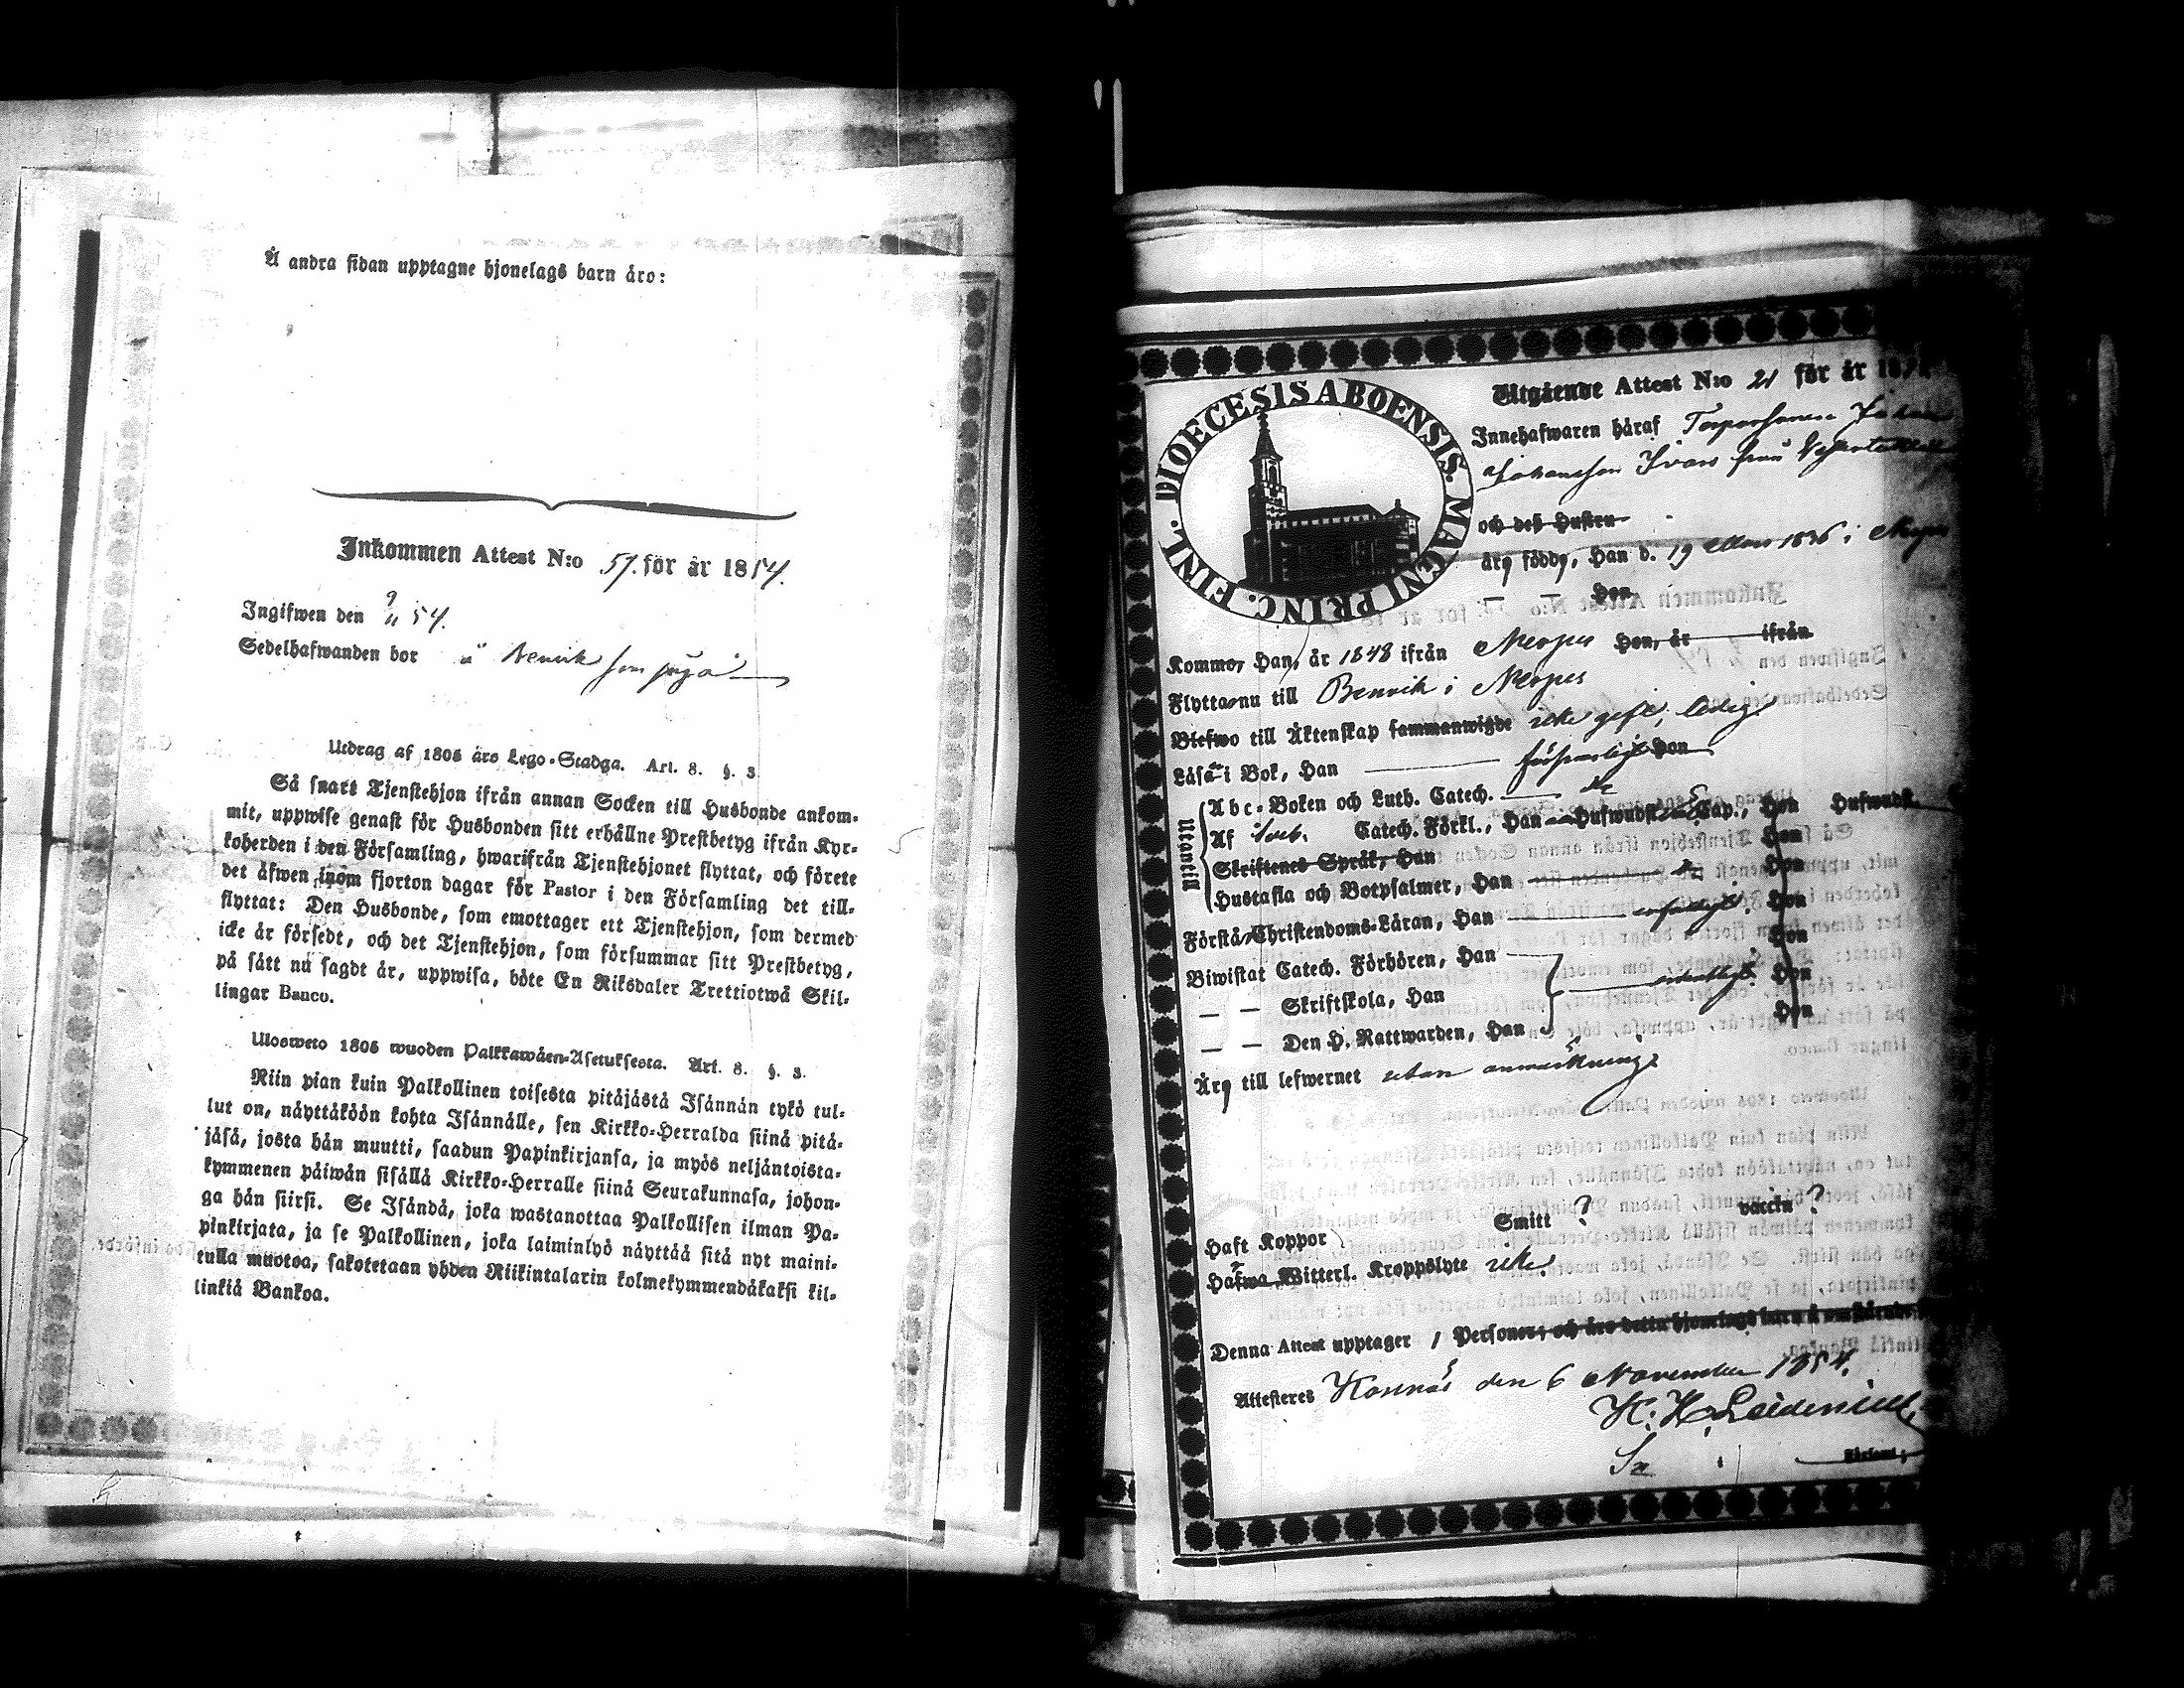 Å andra sidan upptagne hjonelags barn äro:
Inkommen Attest N:o 57. för år 1854.
Ingifwen den 9/11 54.
Sedelhafwanden bor å Benvik som
Utdrag af 1805 års Lego-Stadga. Art. 8. §. 3.
Så snart Tjenstehjon ifrån annan Socken till Husbonde ankom-
mit, uppwise genast för Husbonden sitt erhållne Prestbetyg ifrån Kyr-
koherden i den Församling, hwarifrån Tjenstehjonet flyttat, och förete
det äfwen inom fjorton dagar för Pastor i den Församling det till-
flyttat: Den Husbonde, som emottager ett Tjenstehjon, som dermed
icke är försedt, och det Tjenstehjon, som försummar sitt Prestbetyg,
på sätt nu sagdt är, uppwisa, böte En Riksdaler Trettiotwå Skil-
lingar Banco.
Ulosweto 1805 wuoden Palkkawäen-Asetuksesta. Art. 8. §. 3.
Niin pian kuin Palkollinen toisesta pitäjästä Isännän tykö tul-
lut on, näyttäköön kohta Isännälle, sen Kirkko-Herralda siinä pitä-
jäsä, josta hän muutti, saadun Papinkirjansa, ja myös neljäntoista-
kymmenen päiwän sisällä Kirkko-Herralle siinä Seurakunnasa, johon-
ga hän siirsi. Se Isändä, joka wastanottaa Palkollisen ilman Pa-
pinkirjata, ja se Palkollinen, joka laiminlyö näyttää sitä nyt maini-
tulla muotoa, sakotetaan yhden Riikintalarin kolmekymmendäkaksi kil-
linkiä Bankoa.
DIOECESIS ABOENSIS. MAGNI PRINC. FINL.
Utgående Attest N:o 21 för år 185
Innehafwaren häraf Torparsonen Johan
Johansson Ivars från
och deß Hustru
äro födde, Han d. 19 Mars 1836 i Nerpes
— — Hon
Kommo, Han, år 1848 ifrån Nerpes Hon, år ifrån
Flytta nu till Benvik i Nerpes
Blefwo till Äktenskap sammanwigde icke gift, ledig.
Läsa i Bok, Han försvarligt Hon
Utantill
Abc-Boken och Luth. Catech. do
Af Sveb. Catech. Förkl., Han Hufwudst. Cap., Hon Hufwudst.
Skriftenes Språk, Han Hon
Hustafla och Botpsalmer, Han Hon
Förstå Christendoms-Läran, Han Hon
Biwistat Catech. Förhören, Han Hon
— — Skriftskola, Han Hon
— — Den H. Nattwarden, Han Hon
Äro till lefwernet utan anmärkning
Haft Koppor Smitt ? vaccin ?
Hafwa Witterl. Kroppslyte icke.
Denna Attest upptager 1 Personer; och äro detta hjonelags barn å omstående
Attesteres Korsnäs den 6 November 1854.